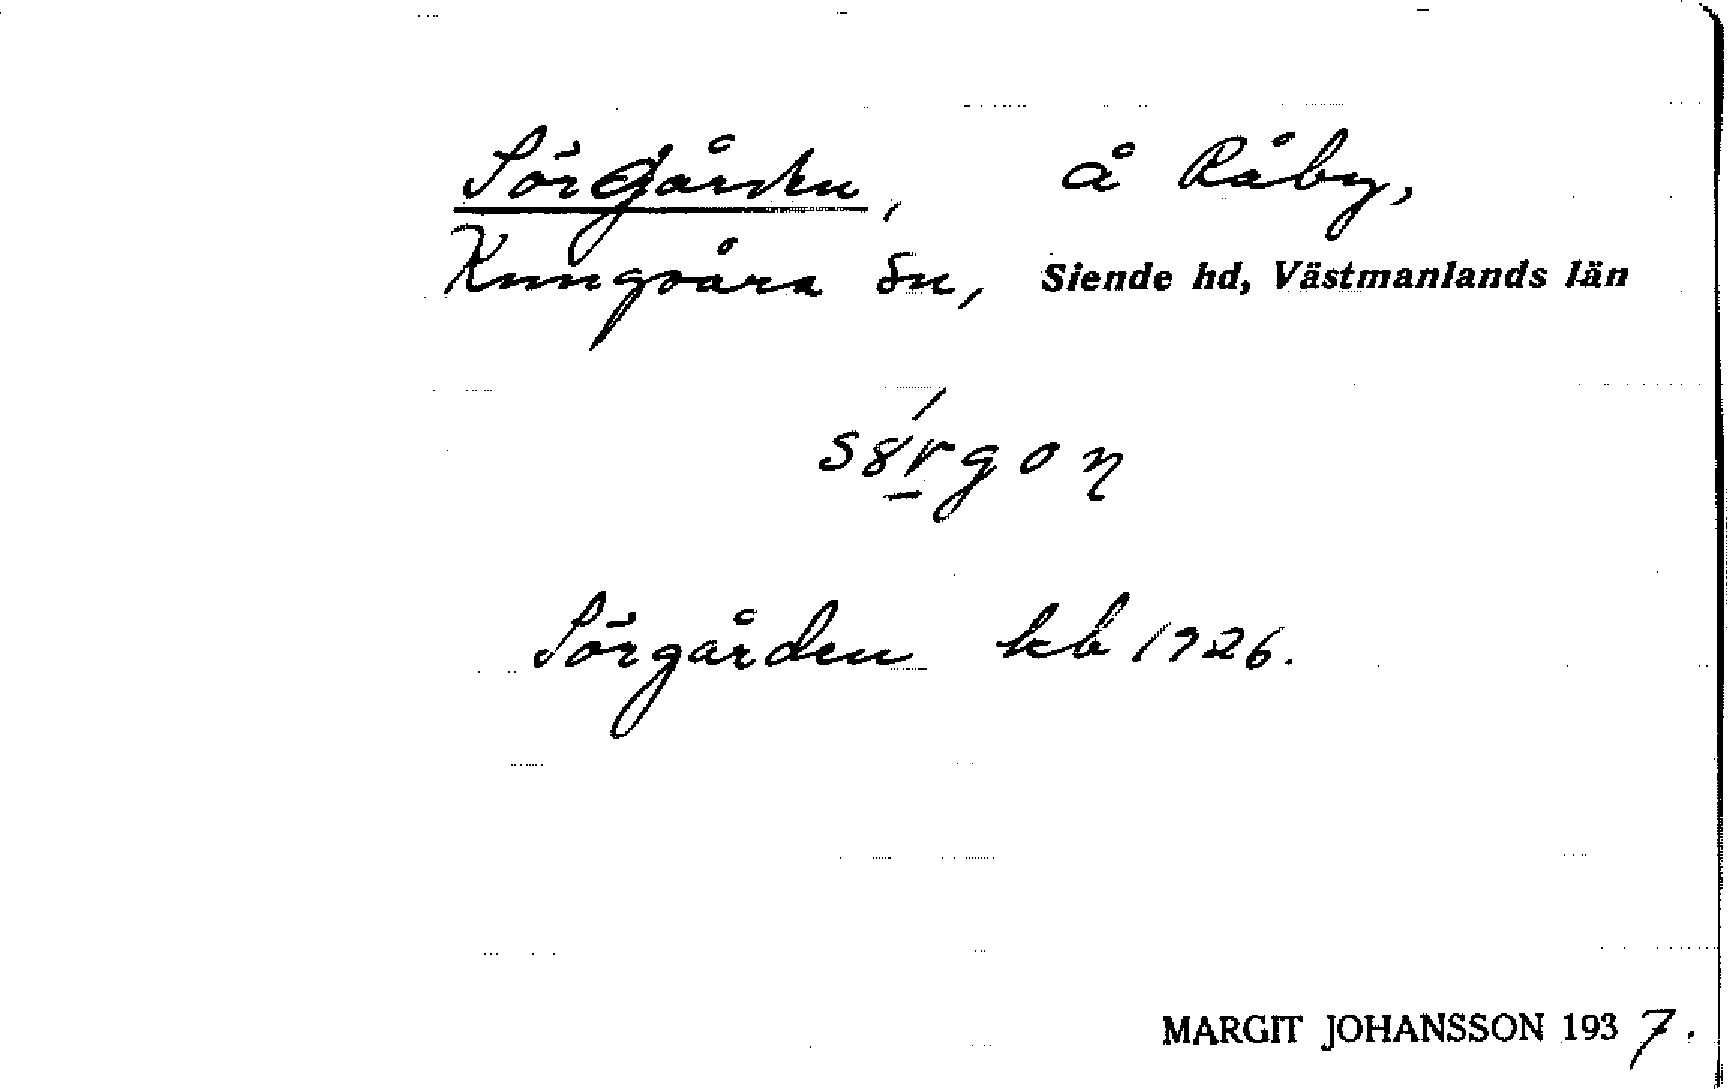 Sörgården, å Råby,
Kungsåra sn, Siende hd, Västmanlands län
sörgon
Sörgården kb 1926.
MARGIT JOHANSSON 1937.